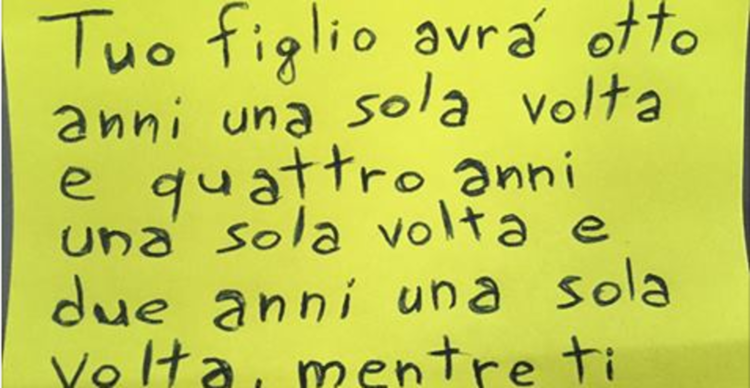 Tuo figlio avrá otto
anni una sola volta
e quattro anni
una sola volta e
due anni una sola
volta, mentre ti